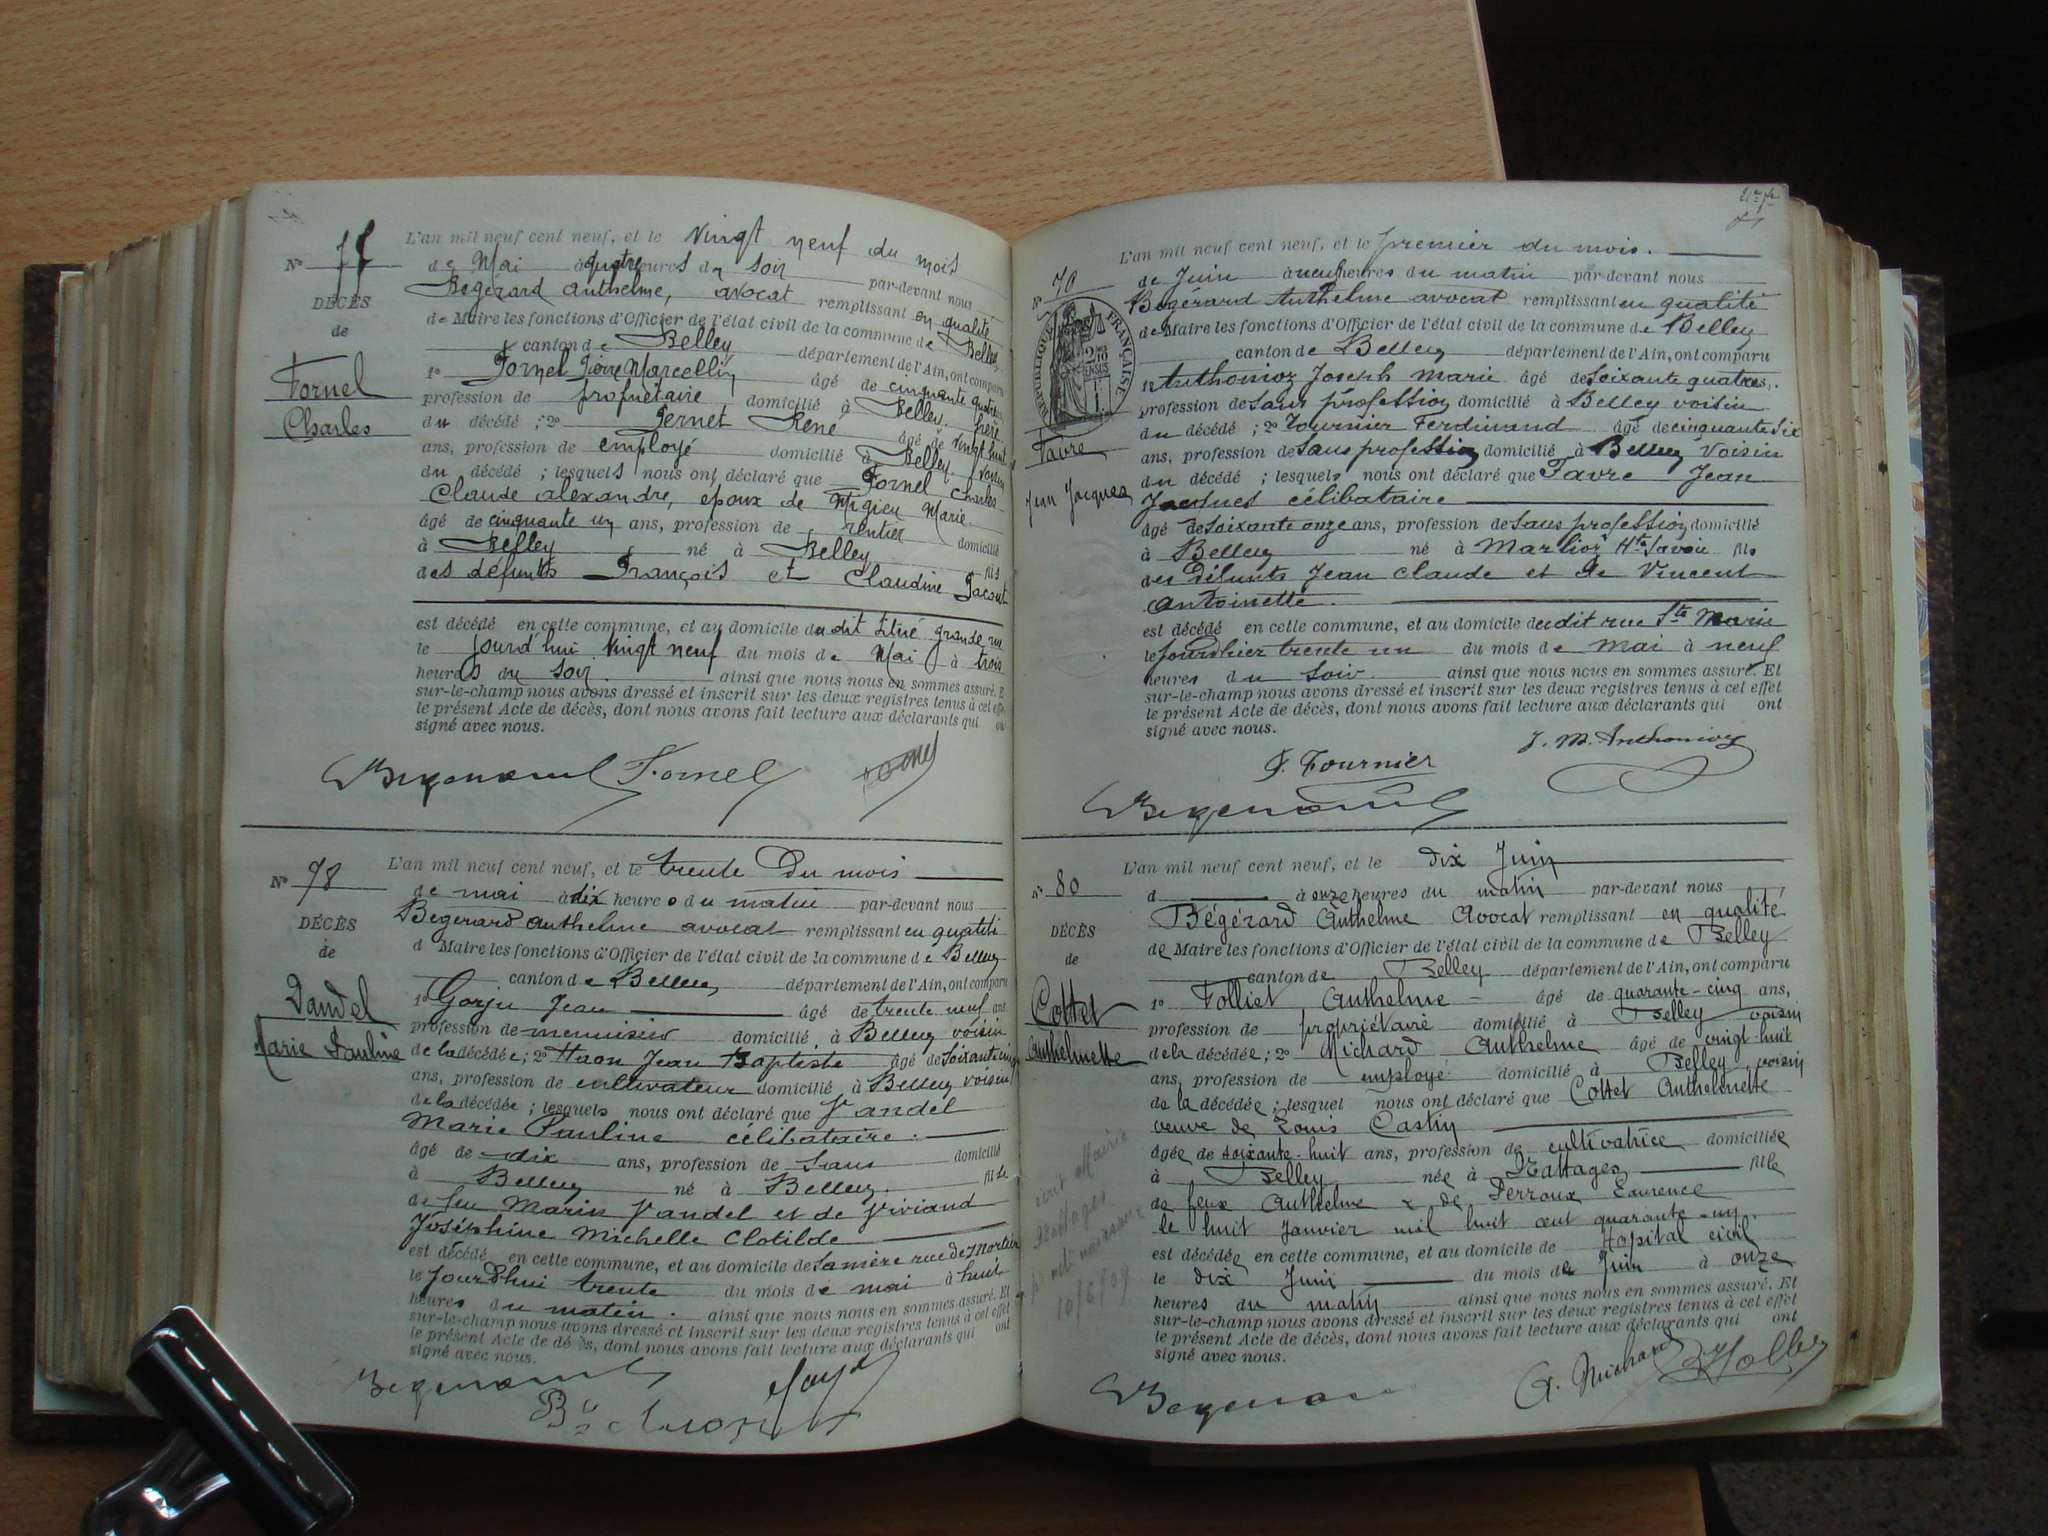 L'an mil neuf cent neuf, et le vingt neuf du mois
N° 77
de Mai à quatre heures du soir par-devant nous
DÉCÈS
Bégérard Anthelme, avocat remplissant en qualité
de
de Maire les fonctions d'Officier de l'état civil de la commune de Belley
canton de Belley département de l'Ain, ont comparu
Fornel
Charles
1° Fornel Pierre Marcellin âgé de cinquante quatre
profession de propriétaire domicilié à Belley, frère
du décédé ; 2° Pernet René âgé de vingt huit
ans, profession de employé domicilié à Belley voisin
du décédé ; lesquels nous ont déclaré que Fornel Charles
Claude Alexandre, époux de Migieu Marie
âgé de cinquante un ans, profession de rentier domicilié
à Belley né à Belley fils
des défunts François et Claudine
est décédé en cette commune, et au domicile du dit situé grande rue
le jourd'hui vingt neuf du mois de Mai à trois
heures du soir. ainsi que nous nous en sommes assuré. Et
sur-le-champ nous avons dressé et inscrit sur les deux registres tenus à cet effet
le présent Acte de décès, dont nous avons fait lecture aux déclarants qui ont
signé avec nous.
Begerard Fornel
L'an mil neuf cent neuf, et le trente Du mois
N° 78
de mai à dix heures du matin par-devant nous
DÉCÈS
Bégerard Anthelme avocat remplissant en qualité
de
d Maire les fonctions d'Officier de l'état civil de la commune de Belley
canton de Belley département de l'Ain, ont comparu
Vandel
Marie Pauline
1° Gorju Jean âgé de trente neuf ans
profession de menuisier domicilié à Belley voisin
de la décédée ; 2° Huon Jean Baptiste âgé de soixante cinq
ans, profession de cultivateur domicilié à Belley voisin
de la décédée ; lesquels nous ont déclaré que Vandel
Marie Pauline célibataire.
âgé de dix ans, profession de sans domicilié
à Belley né à Belley. fille
de feu Marin Vandel et de Viviand
Joséphine Michelle Clotilde
est décédé en cette commune, et au domicile de sa mère rue de
le jourd'hui trente du mois de mai à huit
heures du matin. ainsi que nous nous en sommes assuré. Et
sur-le-champ nous avons dressé et inscrit sur les deux registres tenus à cet effet
le présent Acte de décès, dont nous avons fait lecture aux déclarants qui ont
signé avec nous.
Begerard
L'an mil neuf cent neuf, et le premier du mois.
N° 79
de Juin à neuf heures du matin par-devant nous
Bégérard Anthelme avocat remplissant en qualité
de Maire les fonctions d'Officier de l'état civil de la commune de Belley
canton de Belley département de l'Ain, ont comparu
RÉPUBLIQUE FRANÇAISE
1° Anthonioz Joseph Marie âgé de soixante quatre
profession de sans profession domicilié à Belley voisin
du décédé ; 2° Fournier Ferdinand âgé de cinquante six
Favre
Jean Jacques
ans, profession de sans profession domicilié à Belley voisin
du décédé ; lesquels nous ont déclaré que Favre Jean
Jacques célibataire
âgé de soixante onze ans, profession de sans profession domicilié
à Belley né à Marlioz Hte Savoie fils
des défunts Jean Claude et de Vincent
Antoinette.
est décédé en cette commune, et au domicile du dit rue Ste Marie
le jourd'hier trente un du mois de mai à neuf
heures du soir ainsi que nous nous en sommes assuré. Et
sur-le-champ nous avons dressé et inscrit sur les deux registres tenus à cet effet
le présent Acte de décès, dont nous avons fait lecture aux déclarants qui ont
signé avec nous.
J. M. Anthonioz
F. Fournier
Begerard
L'an mil neuf cent neuf, et le dix Juin
N° 80
d à onze heures du matin par-devant nous
DÉCÈS
Bégérard Anthelme Avocat remplissant en qualité
de
de Maire les fonctions d'Officier de l'état civil de la commune de Belley
canton de Belley département de l'Ain, ont comparu
Cottet
Anthelmette
1° Folliet Anthelme âgé de quarante-cinq ans,
profession de propriétaire domicilié à Belley voisin
de la décédée ; 2° Michard Anthelme âgé de vingt-huit
ans, profession de employé domicilié à Belley voisin
de la décédée ; lesquel nous ont déclaré que Cottet Anthelmette
veuve de Louis Castin
âgée de soixante-huit ans, profession de cultivatrice domiciliée
à Belley née à Nattages fille
de feux Anthelme & de Perroux Laurence
le huit Janvier mil huit cent quarante-un.
est décédée en cette commune, et au domicile de Hopital civil
le dix Juin du mois de Juin à onze
heures du matin ainsi que nous nous en sommes assuré. Et
sur-le-champ nous avons dressé et inscrit sur les deux registres tenus à cet effet
le présent Acte de décès, dont nous avons fait lecture aux déclarants qui ont
signé avec nous.
écrit Mairie
Nattages
10/6/09
Begerard A. Michard Folliet